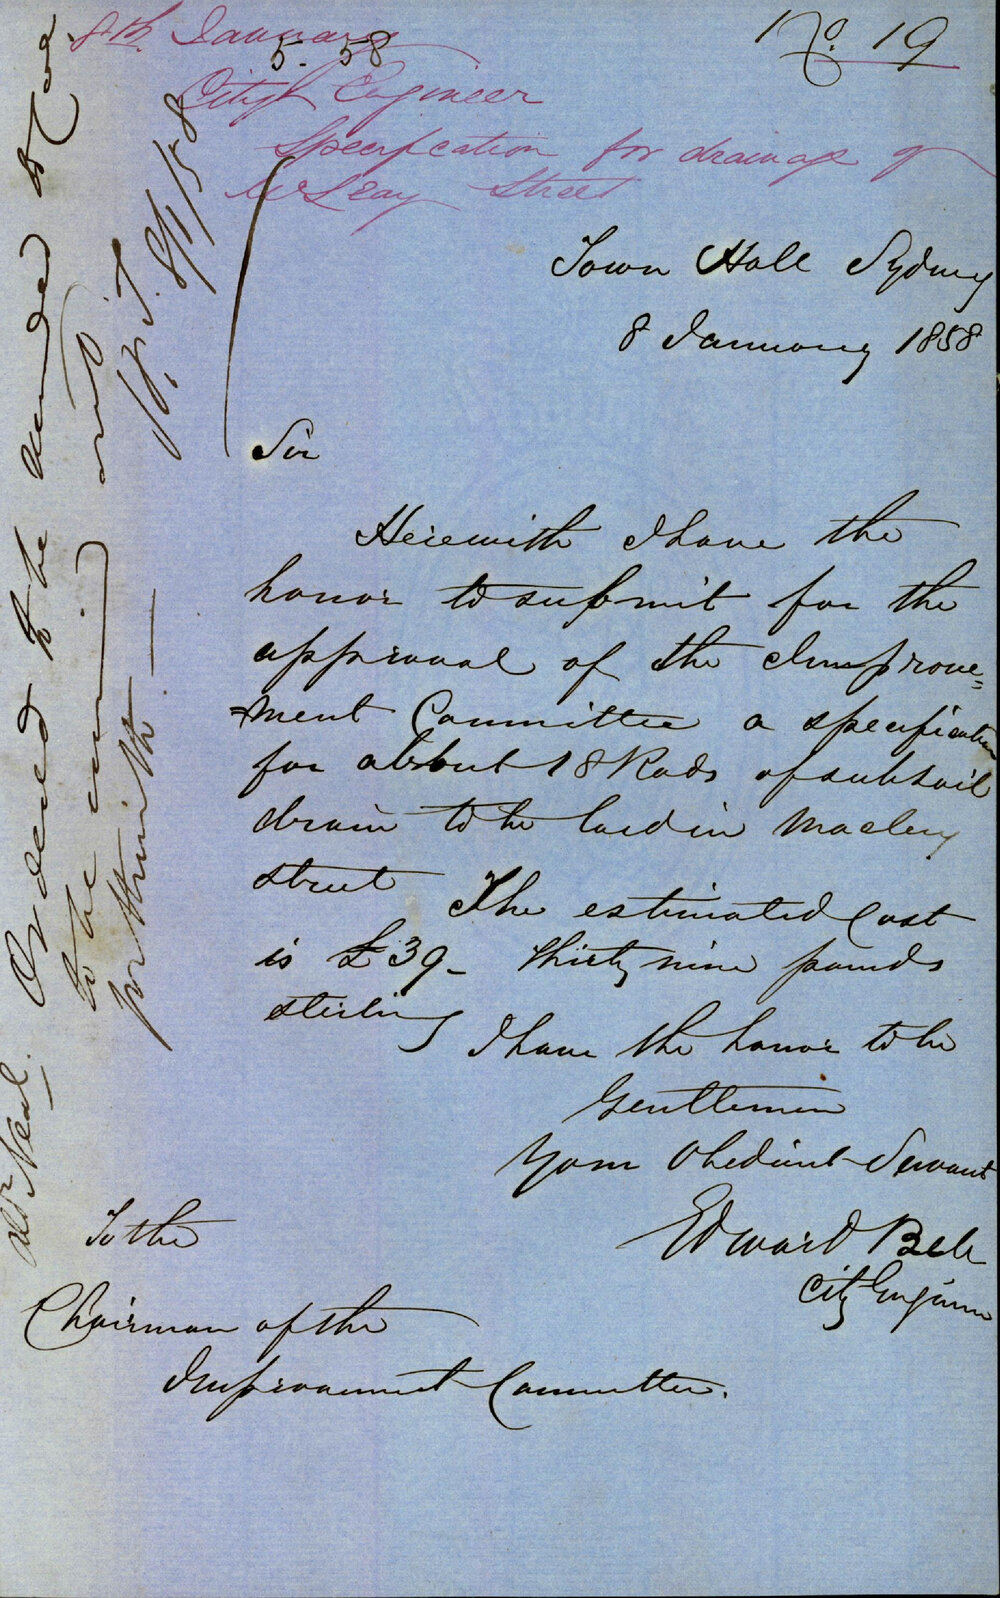 8th January
5. 58
No. 19
City Engineer
Specification for drainage of
McLeay Street
Town Hall Sydney
8 January 1858
Sir
Herewith I have the
honor to submit for the
approval of the Improve=
=ment Committee a specification
for about 18 Rods of subsoil
drain to be laid in Macleay
street The estimated Cost
is £39_ thirty nine pounds
sterling
I have the honor to be
Gentlemen
Your Obedient Servant
Edward Bell
City Engineer
To the
Chairman of the
Improvement Committee.
Mr Neal.
Ordered to be
to be
forthwith
8/1/58